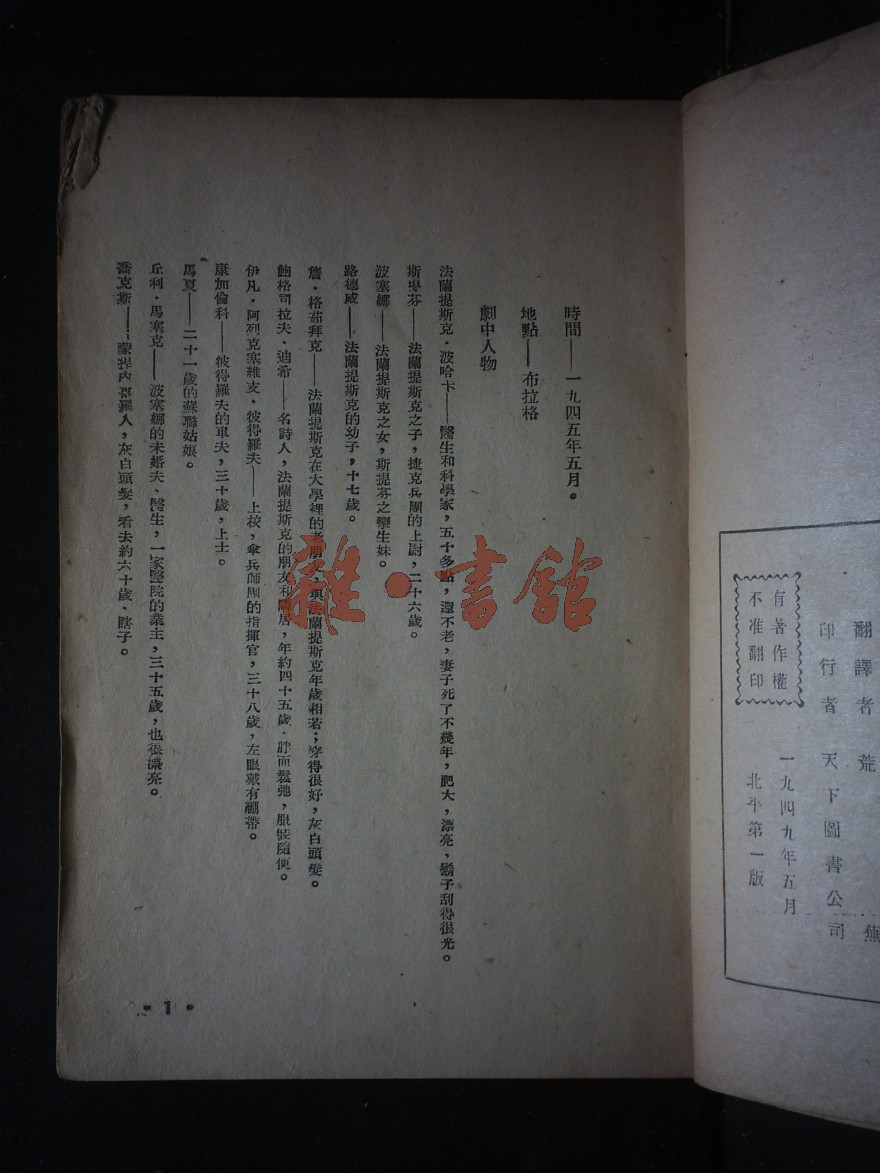 有著作權
不准翻印
翻譯者 荒蕪
印行者 天下圖書公司
一九四九年五月
北平第一版
時間——一九四五年五月。
地點——布拉格
劇中人物
法蘭提斯克·波哈卡——醫生和科學家,五十多點,還不老,妻子死了不幾年,肥大,漂亮,鬍子刮得很光。
斯提芬——法蘭提斯克之子,捷克兵團的上尉,二十六歲。
波塞娜——法蘭提斯克之女,斯提芬之孿生妹。
路德威——法蘭提斯克的幼子,十七歲。
詹·格茹拜克——法蘭提斯克在大學裡的老朋友,與法蘭提斯克年歲相若;穿得很好,灰白頭髮。
鮑格司拉夫·迪希——名詩人,法蘭提斯克的朋友和鄰居,年約四十五歲,靜而鬆弛,服裝隨便。
伊凡·阿列克塞維支·彼得羅夫——上校,傘兵師團的指揮官,三十八歲,左眼戴有繃帶。
康加倫科——彼得羅夫的車夫,三十歲,上士。
馬夏——二十一歲的蘇聯姑娘。
丘利·馬塞克——波塞娜的未婚夫、醫生,一家醫院的業主,三十五歲,也很漂亮。
喬克斯——蒙提內哥羅人,灰白頭髮,看去約六十歲、瞎子。
·1·
雜·書館